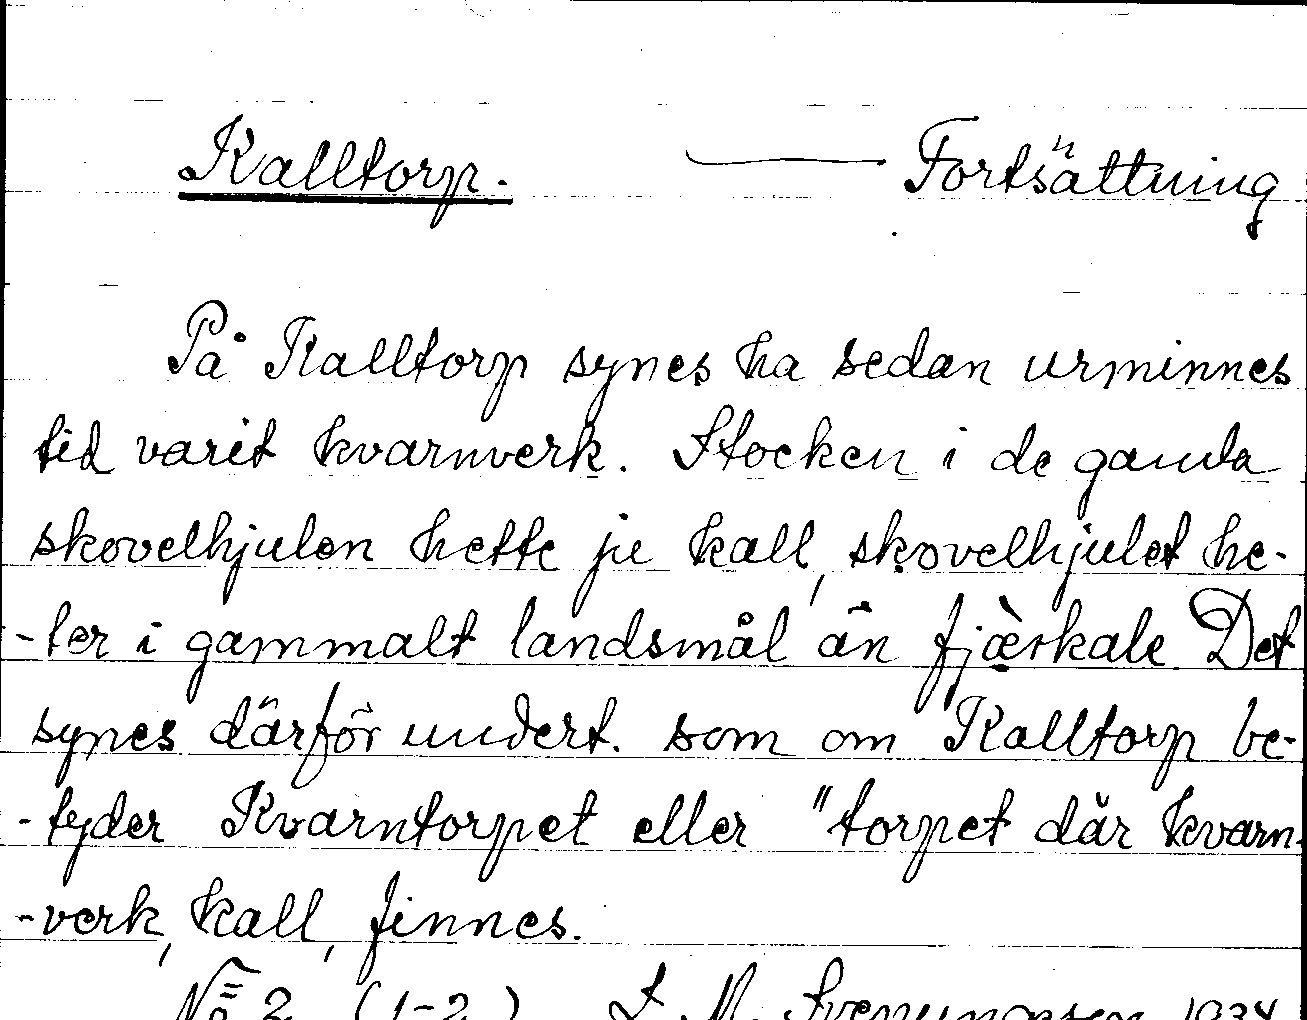 Kalltorp. — Fortsättning
På Kalltorp synes ha sedan urminnes
tid varit kvarnverk. Stocken i de gamla
skovelhjulen hette ju kall, skovelhjulet he-
-ter i gammalt landsmål än fjærkale. Det
synes därför undert. som om Kalltorp be-
-tyder Kvarntorpet eller "torpet där kvarn-
-verk, kall, finnes.
No 2 (1-2) S. M. Svenungsson 1934